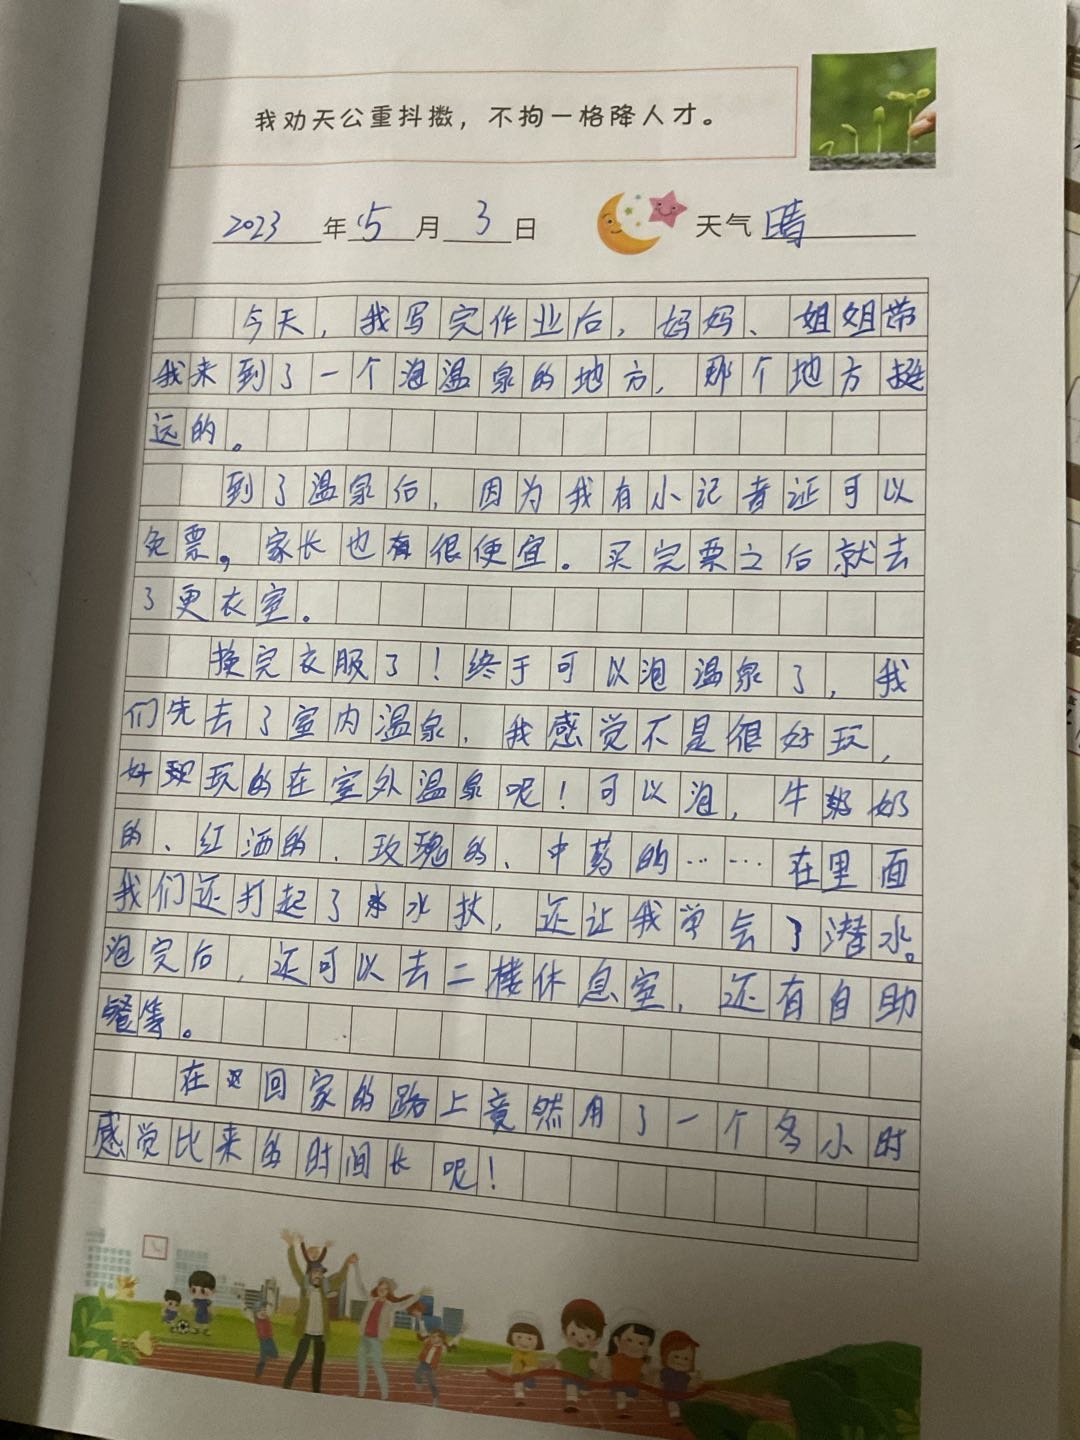 我劝天公重抖擞，不拘一格降人才。
2023年5月3日 天气晴
今天，我写完作业后，妈妈、姐姐带
我来到了一个泡温泉的地方，那个地方挺
远的。
到了温泉后，因为我有小记者证可以
免票，家长也有很便宜。买完票之后就去
了更衣室。
换完衣服了！终于可以泡温泉了，我
们先去了室内温泉，我感觉不是很好玩，
好玩的在室外温泉呢！可以泡，牛奶
的、红酒的、玫瑰的、中药的……在里面
我们还打起了水仗，还让我学会了潜水。
泡完后，还可以去二楼休息室，还有自助
餐等。
在回家的路上竟然用了一个多小时
感觉比来的时间长呢！